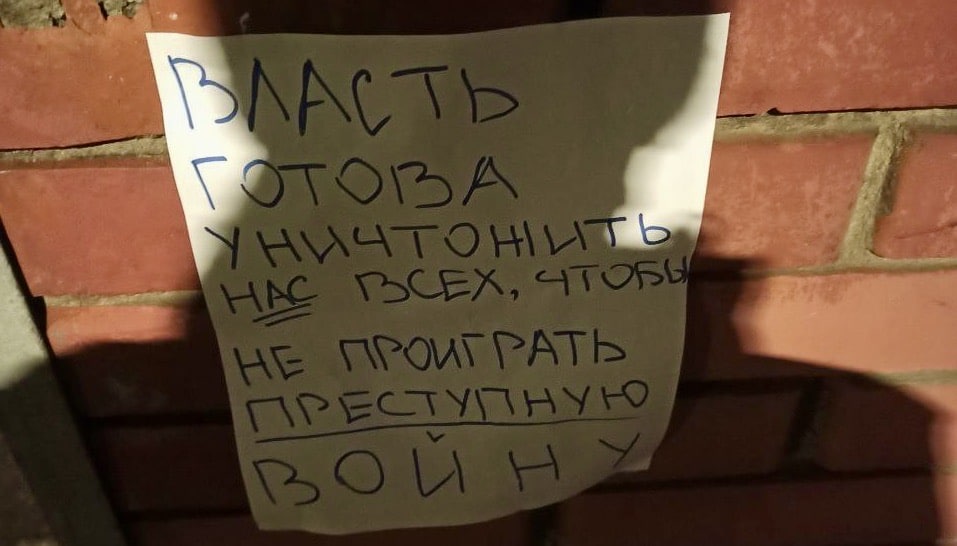 ВЛАСТЬ
ГОТОВА
УНИЧТОЖИТЬ
НАС ВСЕХ, ЧТОБЫ
НЕ ПРОИГРАТЬ
ПРЕСТУПНУЮ
ВОЙНУ